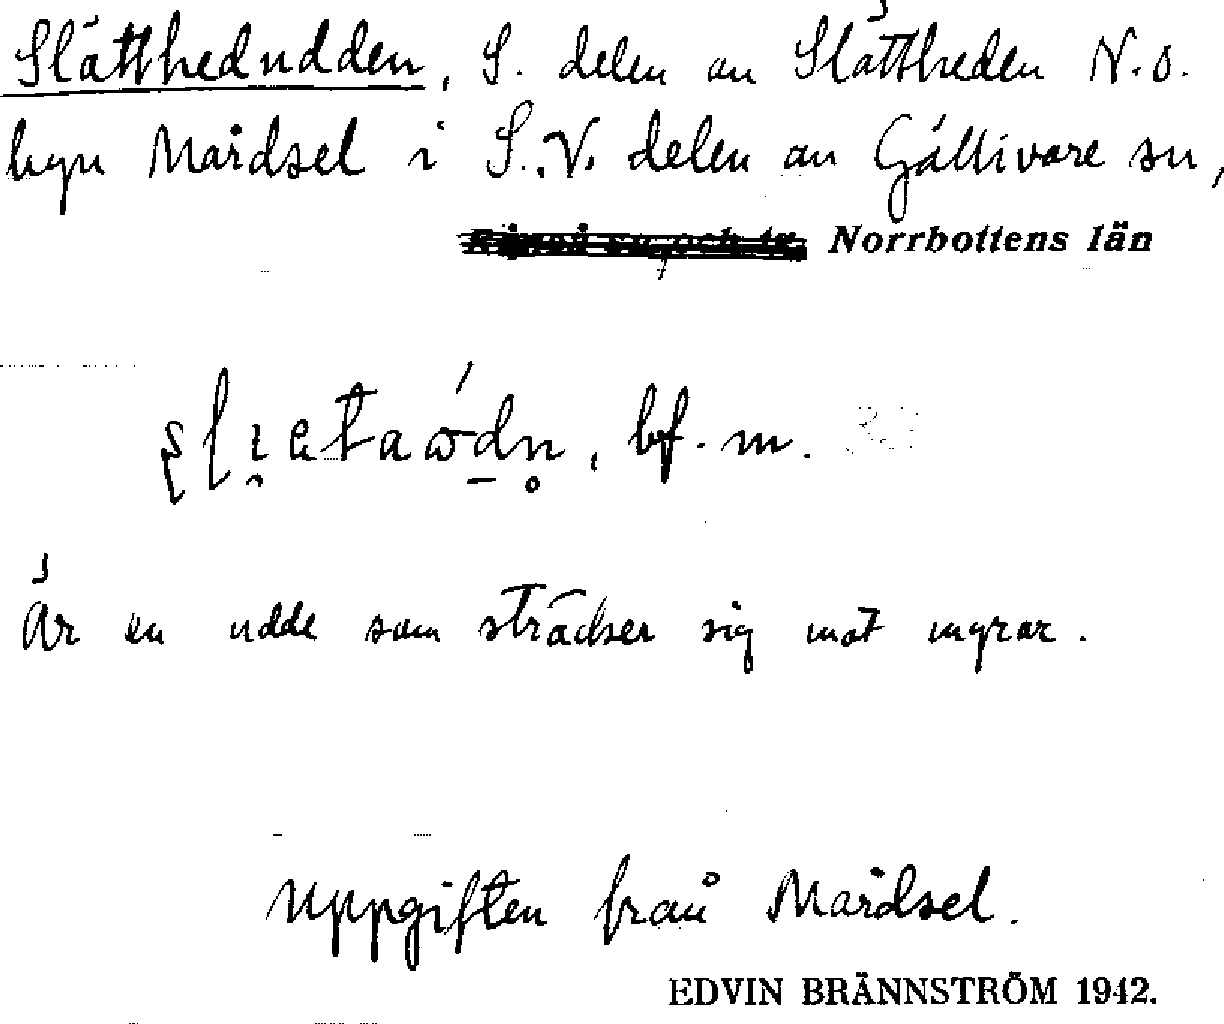 Slätthedudden, S. delen av Slättheden N.O.
byn Mårdsel i S.V. delen av Gällivare sn,
Norrbottens län
bf. m.
Är en udde som sträcker sig mot myrar.
Uppgiften från Mårdsel.
EDVIN BRÄNNSTRÖM 1942.